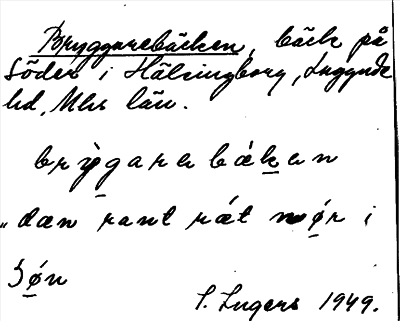 Bryggarebäcken, bäck på
Söder i Hälsingborg, Luggude
hd, Mhs län.
brýgara bǽkæn
"dæn rant rǽt nør i
Søn
S. Ingers 1949.